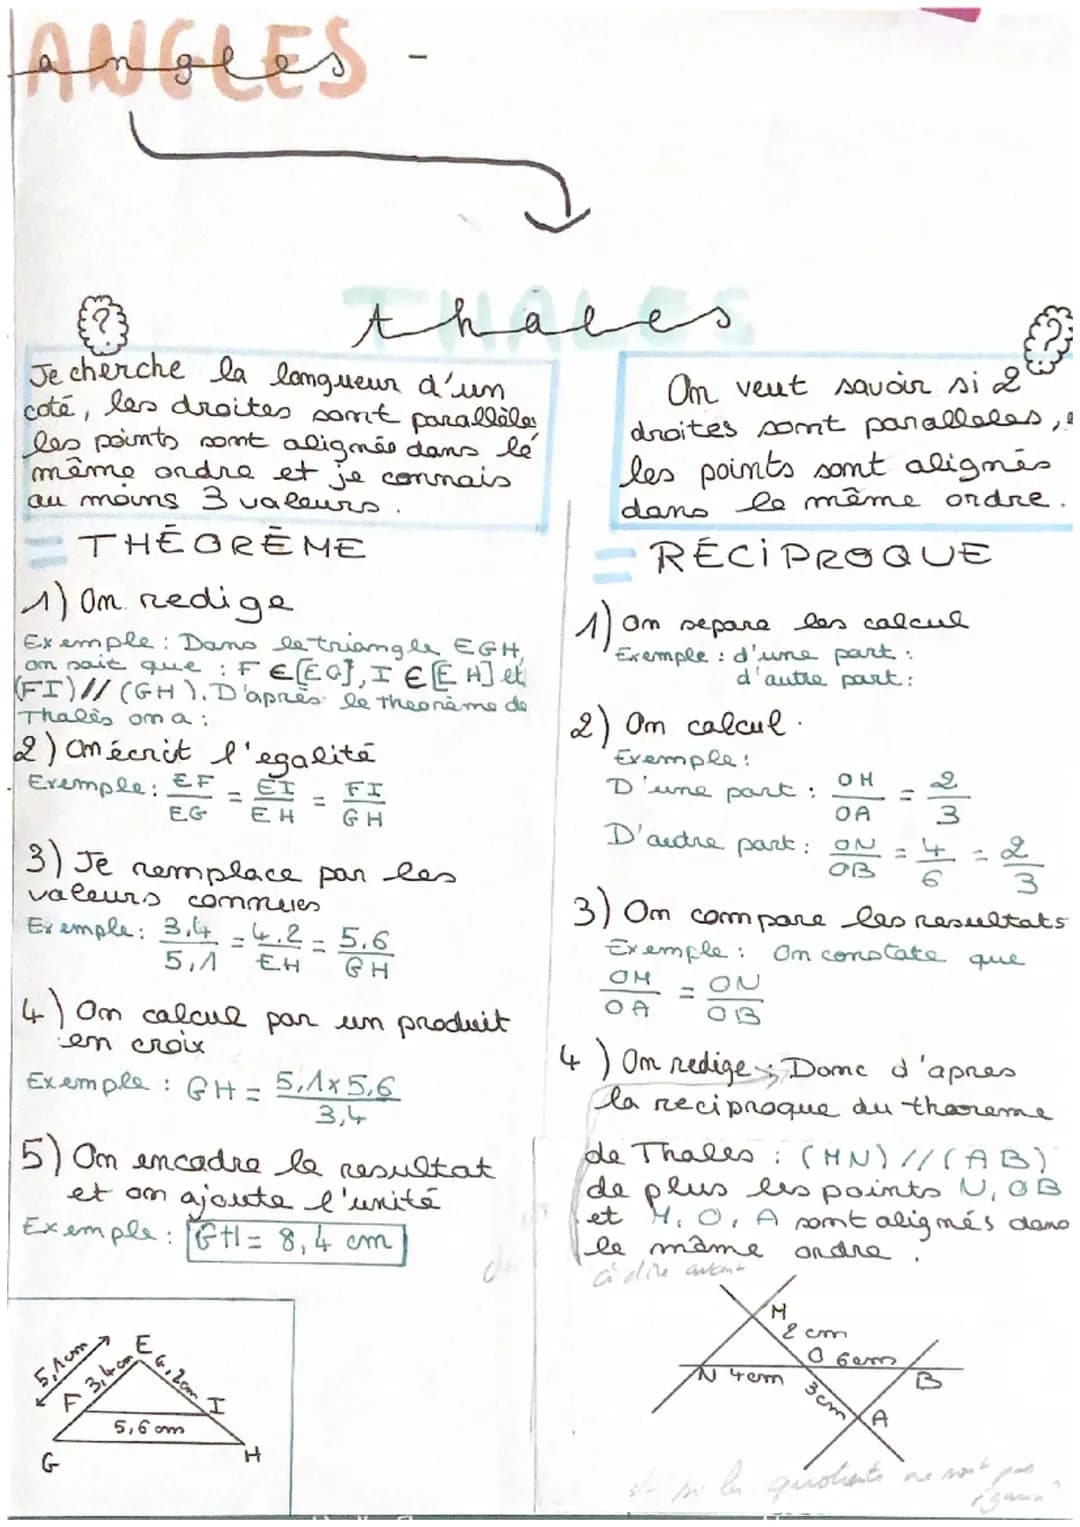 ANGLES
angles -
THALES
thales
?
Je cherche la longueur d'un
coté, les droites sont parallèles
les points sont alignés dans le
même ordre et je connais
au moins 3 valeurs.
= THÉORÈME
1) On redige
Exemple : Dans le triangle EGH,
on sait que : F ∈ [EG], I ∈ [EH] et
(FI) // (GH). D'après le theorème de
Thalès on a :
2) On écrit l'egalité
Exemple : EF/EG = EI/EH = FI/GH
3) Je remplace par les
valeurs connues
Exemple : 3,4/5,1 = 4,2/EH = 5,6/GH
4) On calcul par un produit
en croix
Exemple : GH = 5,1x5,6/3,4
5) On encadre le resultat
et on ajoute l'unité
Exemple : GH = 8,4 cm
5,1cm
3,4cm
E
4,2cm
F
I
5,6cm
G
H
?
On veut savoir si 2
droites sont paralleles, e
les points sont alignés
dans le même ordre.
= RÉCIPROQUE
1) On separe les calcul
Exemple : d'une part :
d'autre part :
2) On calcul.
Exemple :
D'une part : OM/OA = 2/3
D'autre part : ON/OB = 4/6 = 2/3
3) On compare les resultats
Exemple : On constate que
OM/OA = ON/OB
4) On redige : Donc d'apres
la reciproque du theoreme
de Thales : (MN) // (AB)
de plus les points N, O B
et M, O, A sont alignés dans
le même ordre.
à dire avant
M
2cm
O
6cm
N
4cm
3cm
B
A
si les quotients ne sont pas